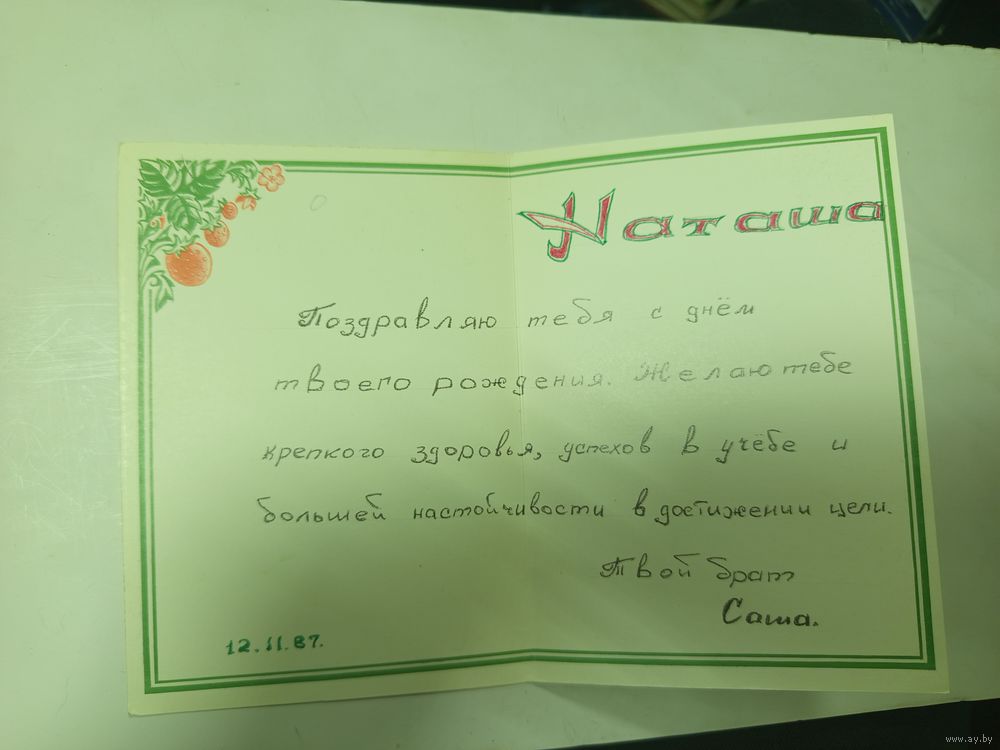 Наташа
Поздравляю тебя с днём
твоего рождения. Желаю тебе
крепкого здоровья, успехов в учёбе и
большей настойчивости в достижении цели.
Твой брат
Саша.
12.II.87.
www.ay.by